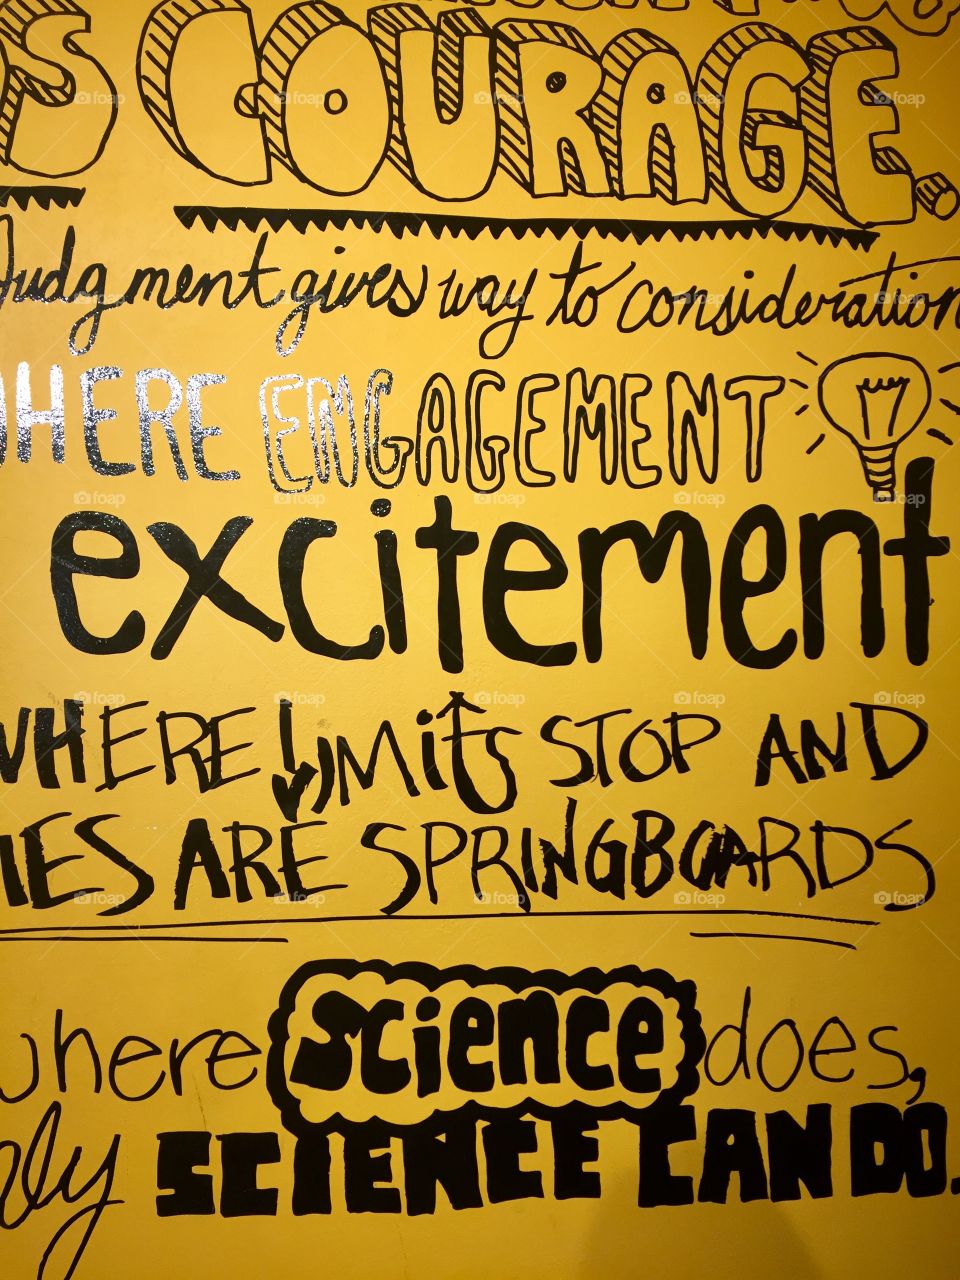 S COURAGE.
Judgment gives way to consideration
WHERE ENGAGEMENT
excitement
WHERE LiMiTS STOP AND
IES ARE SPRINGBOARDS
where science does,
ly SCIENCE CAN DO.